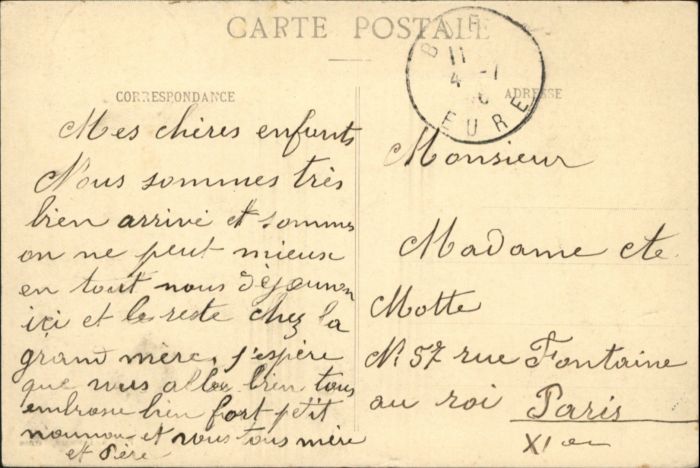 CARTE POSTALE
11
4 -1
EURE
CORRESPONDANCE
ADRESSE
Mes chères enfants
Nous sommes très
bien arrivé et sommes
on ne peut mieux
en tout nous déjeunon
ici et le reste chez la
grand mère, j'espère
que vous allez bien tous
embrasse bien fort petit
et vous tous mère
et Père
Monsieur
Madame
Motte
N. 57 rue Fontaine
au roi Paris
XI